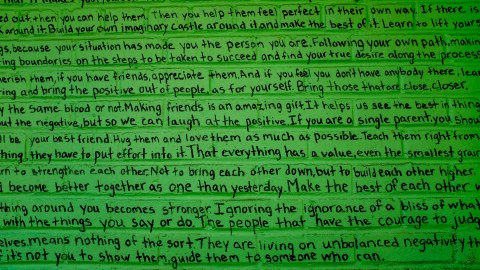 ed out then you can help them. Then you help them feel perfect in their own way. If there is
k around it. Build your own imaginary castle around it and make the best of it. Learn to lift yours
gs, because your situation has made you the person you are. Following your own path, makin
ering boundaries on the steps to be taken to succeed and find your true desire along the process
erish them, if you have friends, appreciate them. And if you feel you don't have anybody there, lear
ring and bring the positive out of people, as for yourself. Bring those that are close, closer.
y the same blood or not. Making friends is an amazing gift. It helps us see the best in thing
out the negative, but so we can laugh at the positive. If you are a single parent, you shou
ll be your best friend. Hug them and love them as much as possible. Teach them right from
thing, they have to put effort into it. That everything has a value, even the smallest grai
rn to strengthen each other. Not to bring each other down, but to build each other higher.
d become better together as one than yesterday. Make the best of each other w
thing around you becomes stronger. Ignoring the ignorance of a bliss of what
with the things you say or do. The people that have the courage to judg
elves, means nothing of the sort. They are living on unbolanced negativity th
f it's not you to show them, guide them to someone who can.